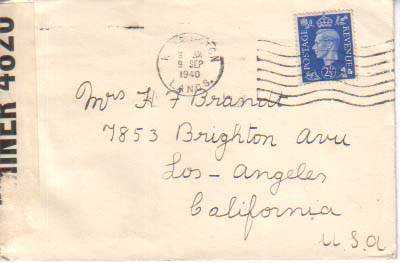 INER 4820
TON
9 SEP
1940
LANCS.
POSTAGE REVENUE
2½D
Mrs H F Brandt
7853 Brighton Avu
Los-Angeles
California
U.S.a